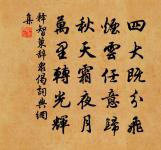 四大既分飛
煙雲任意歸
秋天霜夜月
萬里轉光輝
釋智策辭眾偈詞典網
集